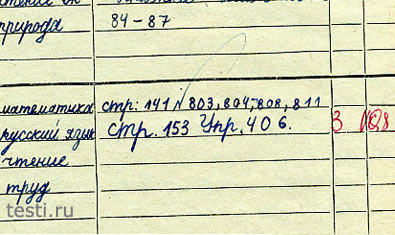 природа 84-87
математика стр: 141 № 803, 804, 808, 811
русский язык стр. 153 Упр. 406. 3
чтение
труд
testi.ru